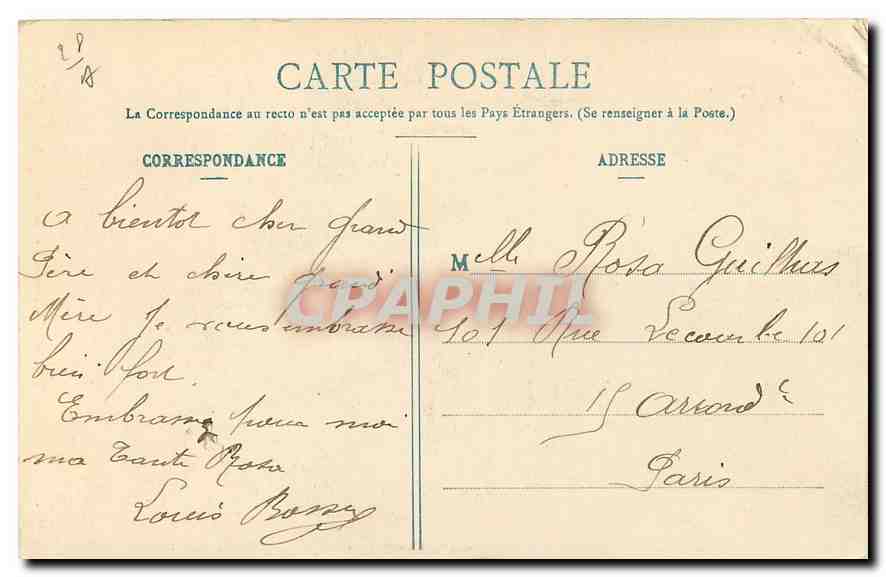 CARTE POSTALE
La Correspondance au recto n'est pas acceptée par tous les Pays Étrangers. (Se renseigner à la Poste.)
CORRESPONDANCE
A bientot cher grand
Père et chère grand
Mère Je vous embrasse
bien fort.
Embrasse pour moi
ma Tante Rosa
Louis
ADRESSE
Melle Rosa Guilhas
101 Rue Lecourbe 101
15 Arrond
Paris
CPAPHIL